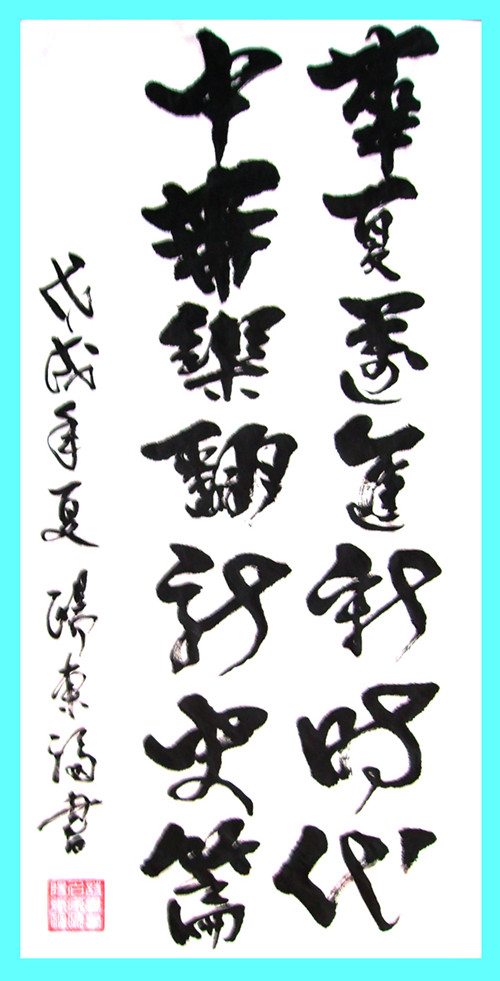 華夏邁進新時代
中華樂翻新史篇
戊戌年夏 陽東福書